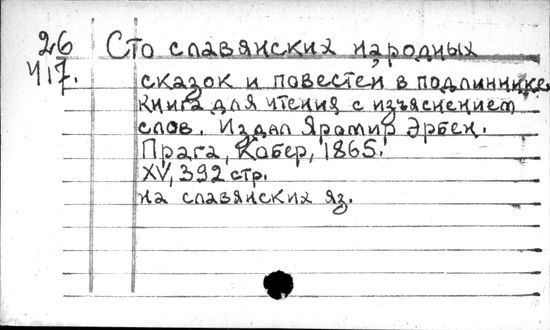 26 Сто славянских народных
417. сказок и повестей в подлиннике.
книга для чтения с изъяснением
слов. Издал Яромир Эрбен.
Прага, Кобер, 1865.
XV, 392 стр.
на славянских яз.